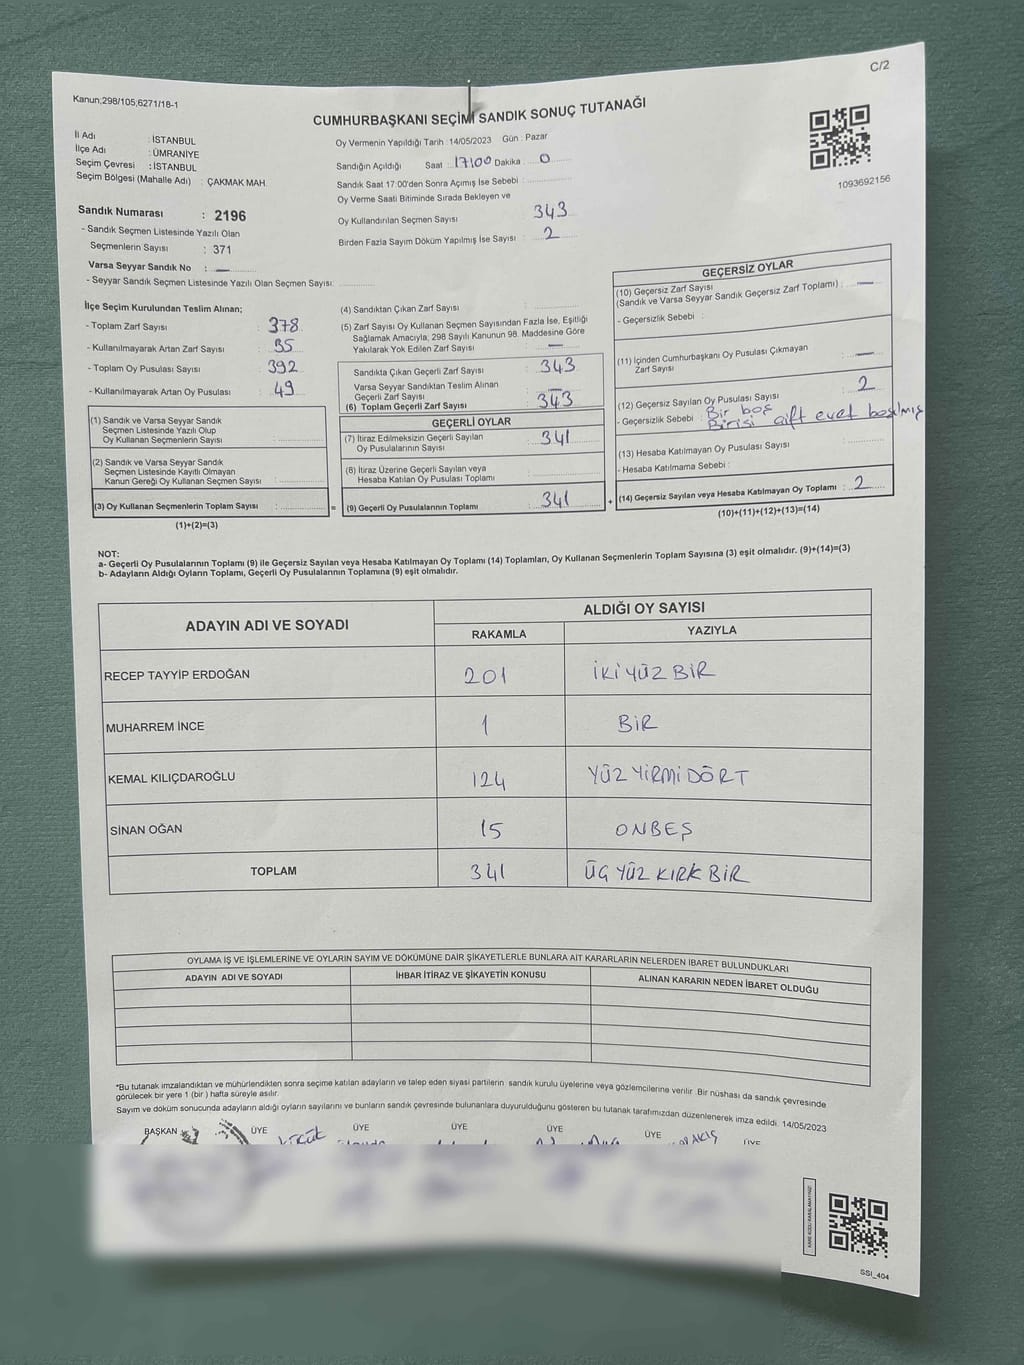 C/2
Kanun;298/105;6271/18-1
CUMHURBAŞKANI SEÇİMİ SANDIK SONUÇ TUTANAĞI
İl Adı : İSTANBUL
İlçe Adı : ÜMRANİYE
Seçim Çevresi : İSTANBUL
Seçim Bölgesi (Mahalle Adı) : ÇAKMAK MAH.
Oy Vermenin Yapıldığı Tarih : 14/05/2023 Gün : Pazar
Sandığın Açıldığı Saat : 17:00 Dakika : 0
Sandık Saat 17:00'den Sonra Açımış İse Sebebi :
Oy Verme Saati Bitiminde Sırada Bekleyen ve
Oy Kullandırılan Seçmen Sayısı : 343
Birden Fazla Sayım Döküm Yapılmış İse Sayısı : 2
1093692156
Sandık Numarası : 2196
- Sandık Seçmen Listesinde Yazılı Olan
Seçmenlerin Sayısı : 371
Varsa Seyyar Sandık No : —
- Seyyar Sandık Seçmen Listesinde Yazılı Olan Seçmen Sayısı:
İlçe Seçim Kurulundan Teslim Alınan;
- Toplam Zarf Sayısı : 378
- Kullanılmayarak Artan Zarf Sayısı : 35
- Toplam Oy Pusulası Sayısı : 392
- Kullanılmayarak Artan Oy Pusulası : 49
(1) Sandık ve Varsa Seyyar Sandık
Seçmen Listesinde Yazılı Olup
Oy Kullanan Seçmenlerin Sayısı :
(2) Sandık ve Varsa Seyyar Sandık
Seçmen Listesinde Kayıtlı Olmayan
Kanun Gereği Oy Kullanan Seçmen Sayısı :
(3) Oy Kullanan Seçmenlerin Toplam Sayısı :
(1)+(2)=(3)
(4) Sandıktan Çıkan Zarf Sayısı :
(5) Zarf Sayısı Oy Kullanan Seçmen Sayısından Fazla İse, Eşitliği
Sağlamak Amacıyla; 298 Sayılı Kanunun 98. Maddesine Göre
Yakılarak Yok Edilen Zarf Sayısı : —
Sandıkta Çıkan Geçerli Zarf Sayısı : 343
Varsa Seyyar Sandıktan Teslim Alınan
Geçerli Zarf Sayısı : —
(6) Toplam Geçerli Zarf Sayısı : 343
GEÇERLİ OYLAR
(7) İtiraz Edilmeksizin Geçerli Sayılan
Oy Pusulalarının Sayısı : 341
(8) İtiraz Üzerine Geçerli Sayılan veya
Hesaba Katılan Oy Pusulası Toplamı :
(9) Geçerli Oy Pusulalarının Toplamı : 341
GEÇERSİZ OYLAR
(10) Geçersiz Zarf Sayısı
(Sandık ve Varsa Seyyar Sandık Geçersiz Zarf Toplamı) : —
- Geçersizlik Sebebi :
(11) İçinden Cumhurbaşkanı Oy Pusulası Çıkmayan
Zarf Sayısı : —
(12) Geçersiz Sayılan Oy Pusulası Sayısı : 2
- Geçersizlik Sebebi : Bir boş
Birisi çift evet basılmış
(13) Hesaba Katılmayan Oy Pusulası Sayısı :
- Hesaba Katılmama Sebebi :
(14) Geçersiz Sayılan veya Hesaba Katılmayan Oy Toplamı : 2
(10)+(11)+(12)+(13)=(14)
NOT:
a- Geçerli Oy Pusulalarının Toplamı (9) ile Geçersiz Sayılan veya Hesaba Katılmayan Oy Toplamı (14) Toplamları, Oy Kullanan Seçmenlerin Toplam Sayısına (3) eşit olmalıdır. (9)+(14)=(3)
b- Adayların Aldığı Oyların Toplamı, Geçerli Oy Pusulalarının Toplamına (9) eşit olmalıdır.
ADAYIN ADI VE SOYADI ALDIĞI OY SAYISI
RAKAMLA YAZIYLA
RECEP TAYYİP ERDOĞAN 201 İKİ YÜZ BİR
MUHARREM İNCE 1 BİR
KEMAL KILIÇDAROĞLU 124 YÜZ YİRMİ DÖRT
SİNAN OĞAN 15 ONBEŞ
TOPLAM 341 ÜÇ YÜZ KIRK BİR
OYLAMA İŞ VE İŞLEMLERİNE VE OYLARIN SAYIM VE DÖKÜMÜNE DAİR ŞİKAYETLERLE BUNLARA AİT KARARLARIN NELERDEN İBARET BULUNDUKLARI
ADAYIN ADI VE SOYADI İHBAR İTİRAZ VE ŞİKAYETİN KONUSU ALINAN KARARIN NEDEN İBARET OLDUĞU
*Bu tutanak imzalandıktan ve mühürlendikten sonra seçime katılan adayların ve talep eden siyasi partilerin sandık kurulu üyelerine veya gözlemcilerine verilir. Bir nüshası da sandık çevresinde
görülecek bir yere 1 (bir ) hafta süreyle asılır.
Sayım ve döküm sonucunda adayların aldığı oyların sayılarını ve bunların sandık çevresinde bulunanlara duyurulduğunu gösteren bu tutanak tarafımızdan düzenlenerek imza edildi. 14/05/2023
BAŞKAN ÜYE ÜYE ÜYE ÜYE ÜYE ÜYE
SSI_404